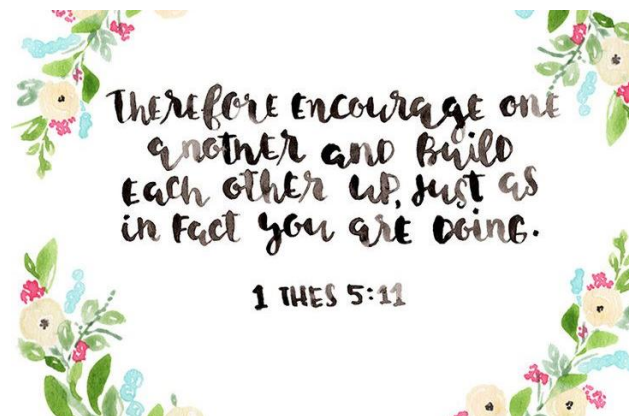 Therefore encourage one
another and build
each other up, just as
in fact you are doing.
1 THES 5:11